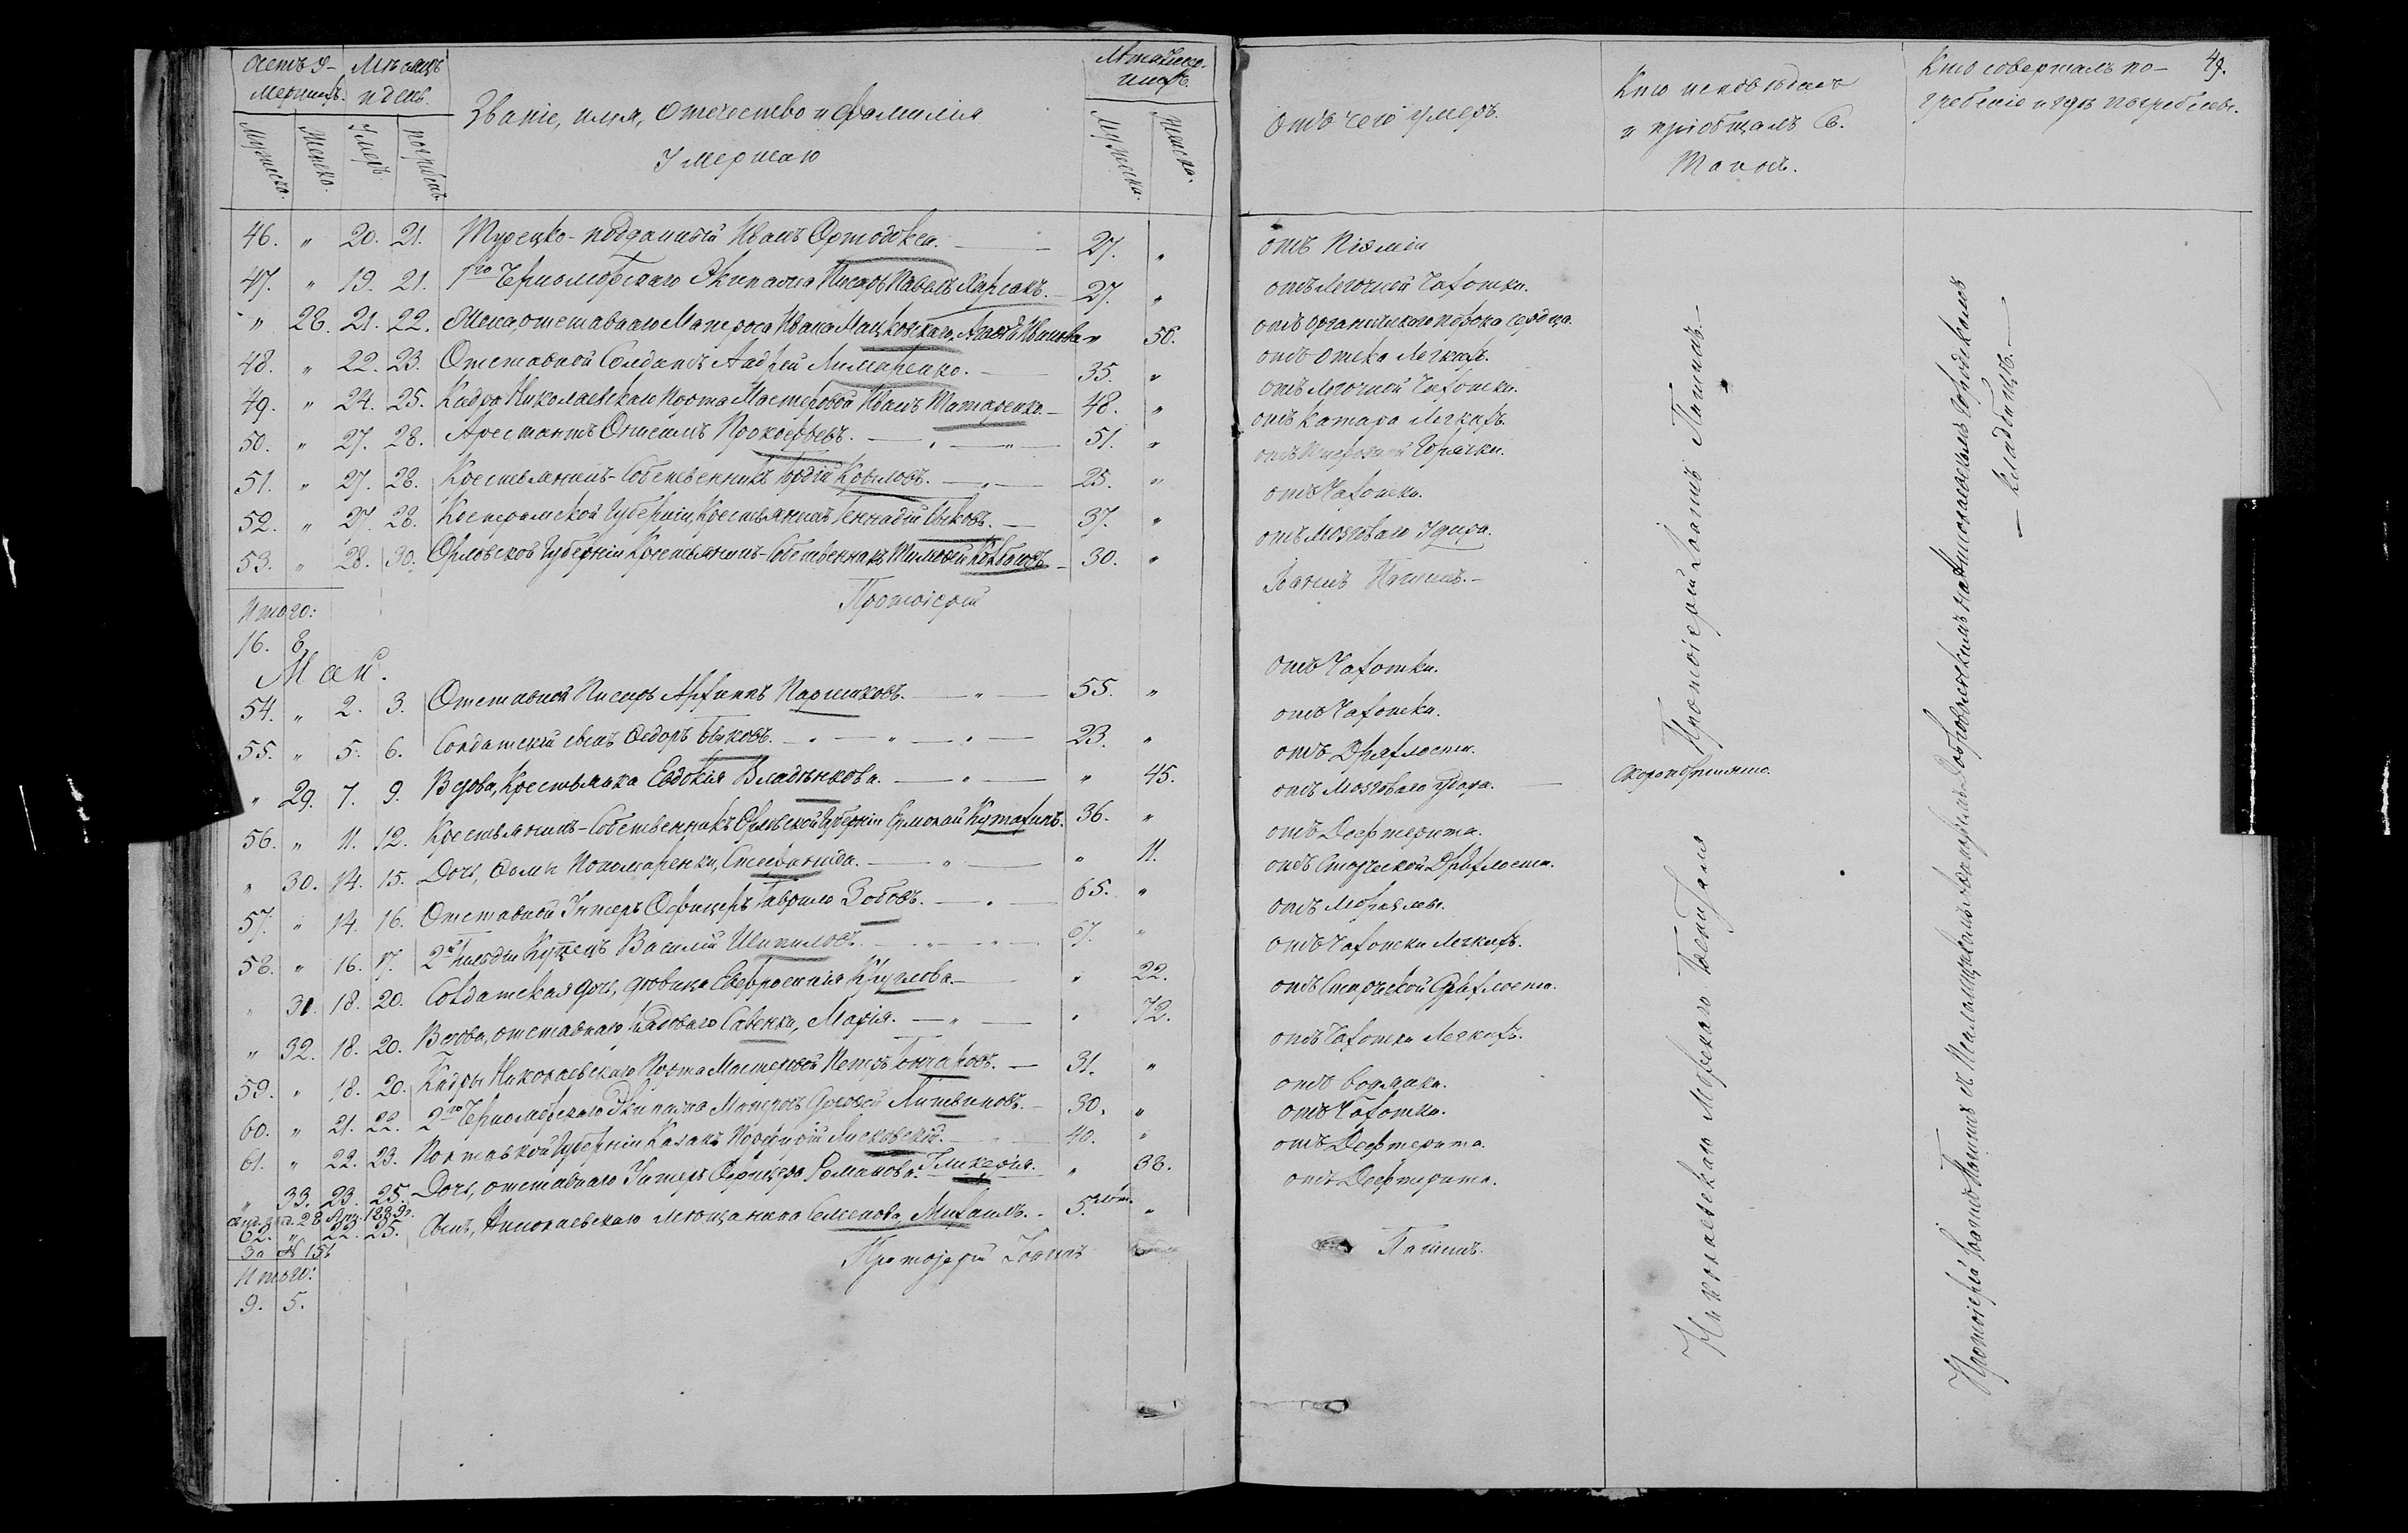 Счетъ у-
мершихъ.
Мѣсяцъ
и день.
Мужеска.
Женска.
Умеръ.
погребенъ.
Званіе, имя, отчество и фамилія
умершаго
Лѣта умер-
шихъ.
Мужеска.
Женска.
46. " 20. 21. Турецко-подданный Иванъ Ортодокси. 27. "
47. " 19. 21. 1го Черноморскаго Экипажа Писарь Павелъ 27. "
" 28. 21. 22. Жена отставнаго Матроса Ивана " 56.
48. " 22. 23. Отставной Солдатъ Андрей Лимаренко. 35. "
49. " 24. 25. Кадра Николаевскаго Порта Мастеровой Иванъ Татаренко. 48. "
50. " 27. 28. Арестантъ Прокофьевъ. 51. "
51. " 27. 28. Крестьянинъ-Собственникъ 25. "
52. " 27. 28. Костромской Губерніи, Крестьянинъ Геннадій Быковъ. 37. "
53. " 28. 30. Орловской Губерніи Крестьянинъ-Собственникъ Тимофей 30. "
Итого:
16. 8.
Протоіерей
Май.
54. " 2. 3. Отставной Писарь Паршиковъ. 55. "
55. " 5. 6. Солдатскій сынъ Ѳедоръ Быковъ. 23. "
" 29. 7. 9. Вдова, Крестьянка Евдокія Владѣнкова. " 45.
56. " 11. 12. Крестьянинъ-Собственникъ Орловской Губерніи Ермолай Кутахинъ. 36. "
" 30. 14. 15. Дочь, Ѳомы Пономаренки, Стефанида. " 11.
57. " 14. 16. Отставной Унтеръ Офицеръ Гаврило Зобовъ. 65. "
58. " 16. 17. 2й гильдіи Купецъ Василій Шипиловъ. 67. "
" 31. 18. 20. Солдатская дочь, дѣвица Евфросинія Круглова. " 22.
" 32. 18. 20. Вдова, отставнаго Савенки, Марія. " 72.
59. " 18. 20. Кадры Николаевскаго Порта Мастеровой Петръ Гончаровъ. 31. "
60. " 21. 22. 2го Черноморскаго Экипажа Матросъ Литвиновъ. 30. "
61. " 22. 23. Полтавской Губерніи Казакъ Порфирій Лисковскій. 40. "
" 33. 23. 25. Дочь, отставнаго Унтеръ Офицера Романова. Гликерія. " 38.
28 Апр. 1889г.
62. " 22. 25. Сынъ, Николаевскаго мѣщанина Семенова, Михаилъ. 5. мѣс. "
За № 151
Итого:
9. 5.
Протоіерей Іоаннъ
49.
Отъ чего умеръ.
Кто исповѣдалъ
и пріобщалъ Св.
Таинъ.
Кто совершалъ по-
гребеніе и гдѣ погребены.
отъ Піэміи
отъ Легочной Чахотки.
отъ Органическаго порока сердца.
отъ Отека Легкихъ.
отъ Легочной Чахотки.
отъ Катара Легкихъ.
отъ Горячки.
отъ Чахотки.
отъ Мозговаго Удара.
Іоаннъ Пагинъ.
отъ Чахотки.
отъ Чахотки.
отъ Дряхлости.
отъ Мозговаго удара.
Скоропостижно.
отъ Дифтерита.
отъ Старческой Дряхлости.
отъ
отъ Чахотки Легкихъ.
отъ Старческой Дряхлости.
отъ Чахотки Легкихъ.
отъ Водянки.
отъ Чахотки.
отъ Дифтерита.
отъ Дифтерита.
Пагинъ.
Николаевскаго Морскаго Госпиталя Протоіерей Іоаннъ Пагинъ.
Протоіерей Іоаннъ Пагинъ съ Псаломщикомъ на Николаевскомъ Городскомъ
кладбищѣ.